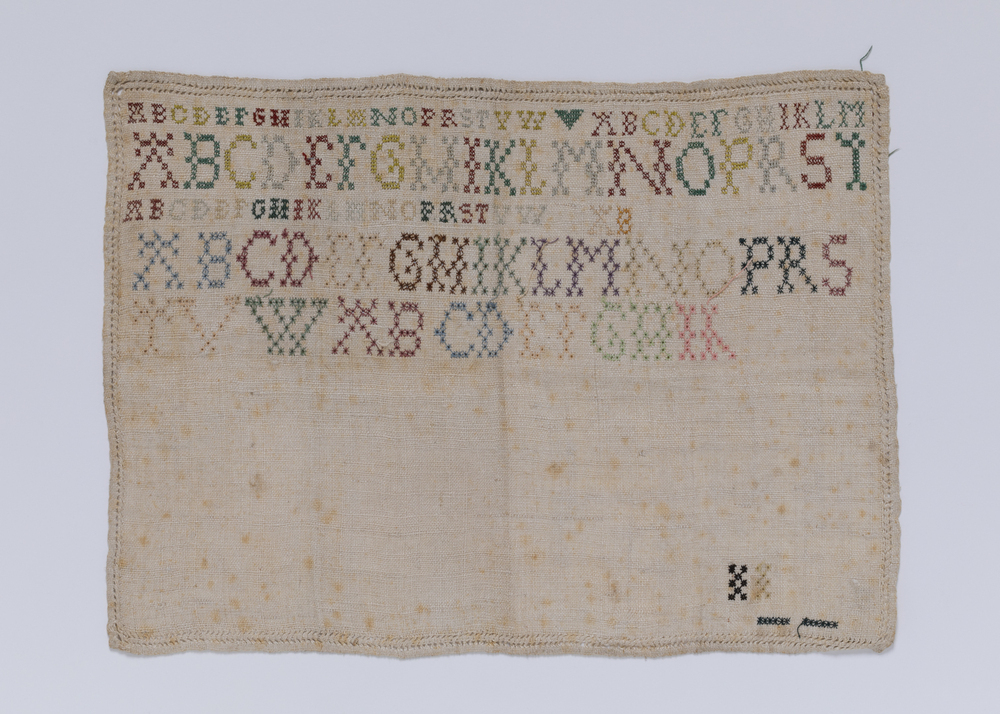 ABCDEFGHIKLMNOPRSTVW ABCDEFGHIKLM
ABCDEFGHIKLMNOPRST
ABCDEFGHIKLMNOPRSTVW AB
ABCDEFGHIKLMNOPRS
TVWABCDEFGHIK